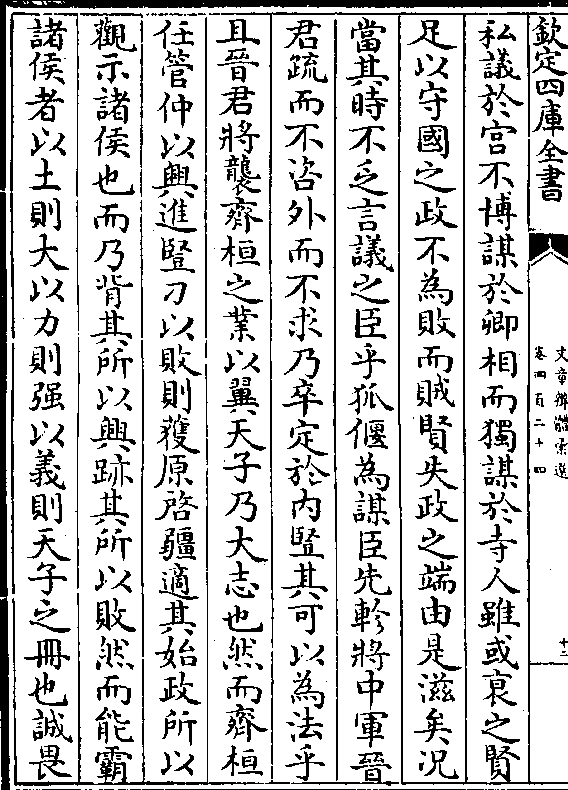 欽定四庫全書
文章辨體彙選
卷四百二十四
十三
私議於宫不博謀於卿相而獨謀於寺人雖或衰之賢
足以守國之政不為敗而賊賢失政之端由是滋矣況
當其時不乏言議之臣乎狐偃為謀臣先軫將中軍晉
君疏而不咨外而不求乃卒定於内豎其可以為法乎
且晉君將襲齊桓之業以翼天子乃大志也然而齊桓
任管仲以興進豎刀以敗則獲原啓疆適其始政所以
觀示諸侯也而乃背其所以興跡其所以敗然而能霸
諸侯者以土則大以力則强以義則天子之冊也誠畏